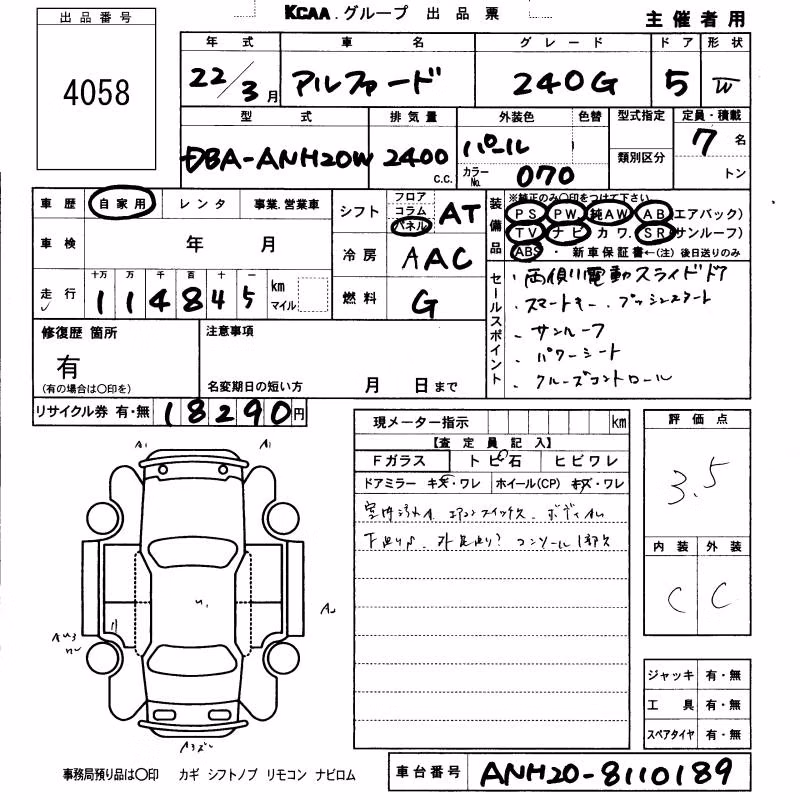 KCAA.グループ 出品票
主催者用
出品番号
4058
年式 車名 グレード ドア 形状
22/3月 アルファード 240G 5 W
型式 排気量 外装色 色替 型式指定 定員・積載
DBA-ANH20W 2400 c.c. パール 7名
カラーNo. 070 類別区分 トン
車歴 自家用 レンタ 事業.営業車
シフト フロア コラム パネル AT
装備品
※純正のみ〇印をつけて下さい
PS PW 純AW AB エアバック)
TV ナビ カワ. SR サンルーフ)
ABS ・ 新車保証書←(注) 後日送りのみ
車検 年 月
冷房 AAC
走行 十万 万 千 百 十 一
114845 km マイル
燃料 G
セールスポイント
・両側電動スライドドア
・スマートキー.プッシュスタート
・サンルーフ
・パワーシート
・クルーズコントロール
修復歴 箇所
有
(有の場合は〇印を)
注意事項
名変期日の短い方 月 日まで
リサイクル券 有・無 18290円
現メーター指示 km
【査定員記入】
Fガラス トビ石 ヒビワレ
ドアミラー キズ・ワレ ホイール(CP) キズ・ワレ
エアコンスイッチ
コンソール
評価点
3.5
内装 外装
C C
A1 A1
A3
ジャッキ 有・無
工具 有・無
スペアタイヤ 有・無
事務局預り品は〇印 カギ シフトノブ リモコン ナビロム
車台番号 ANH20-8110189